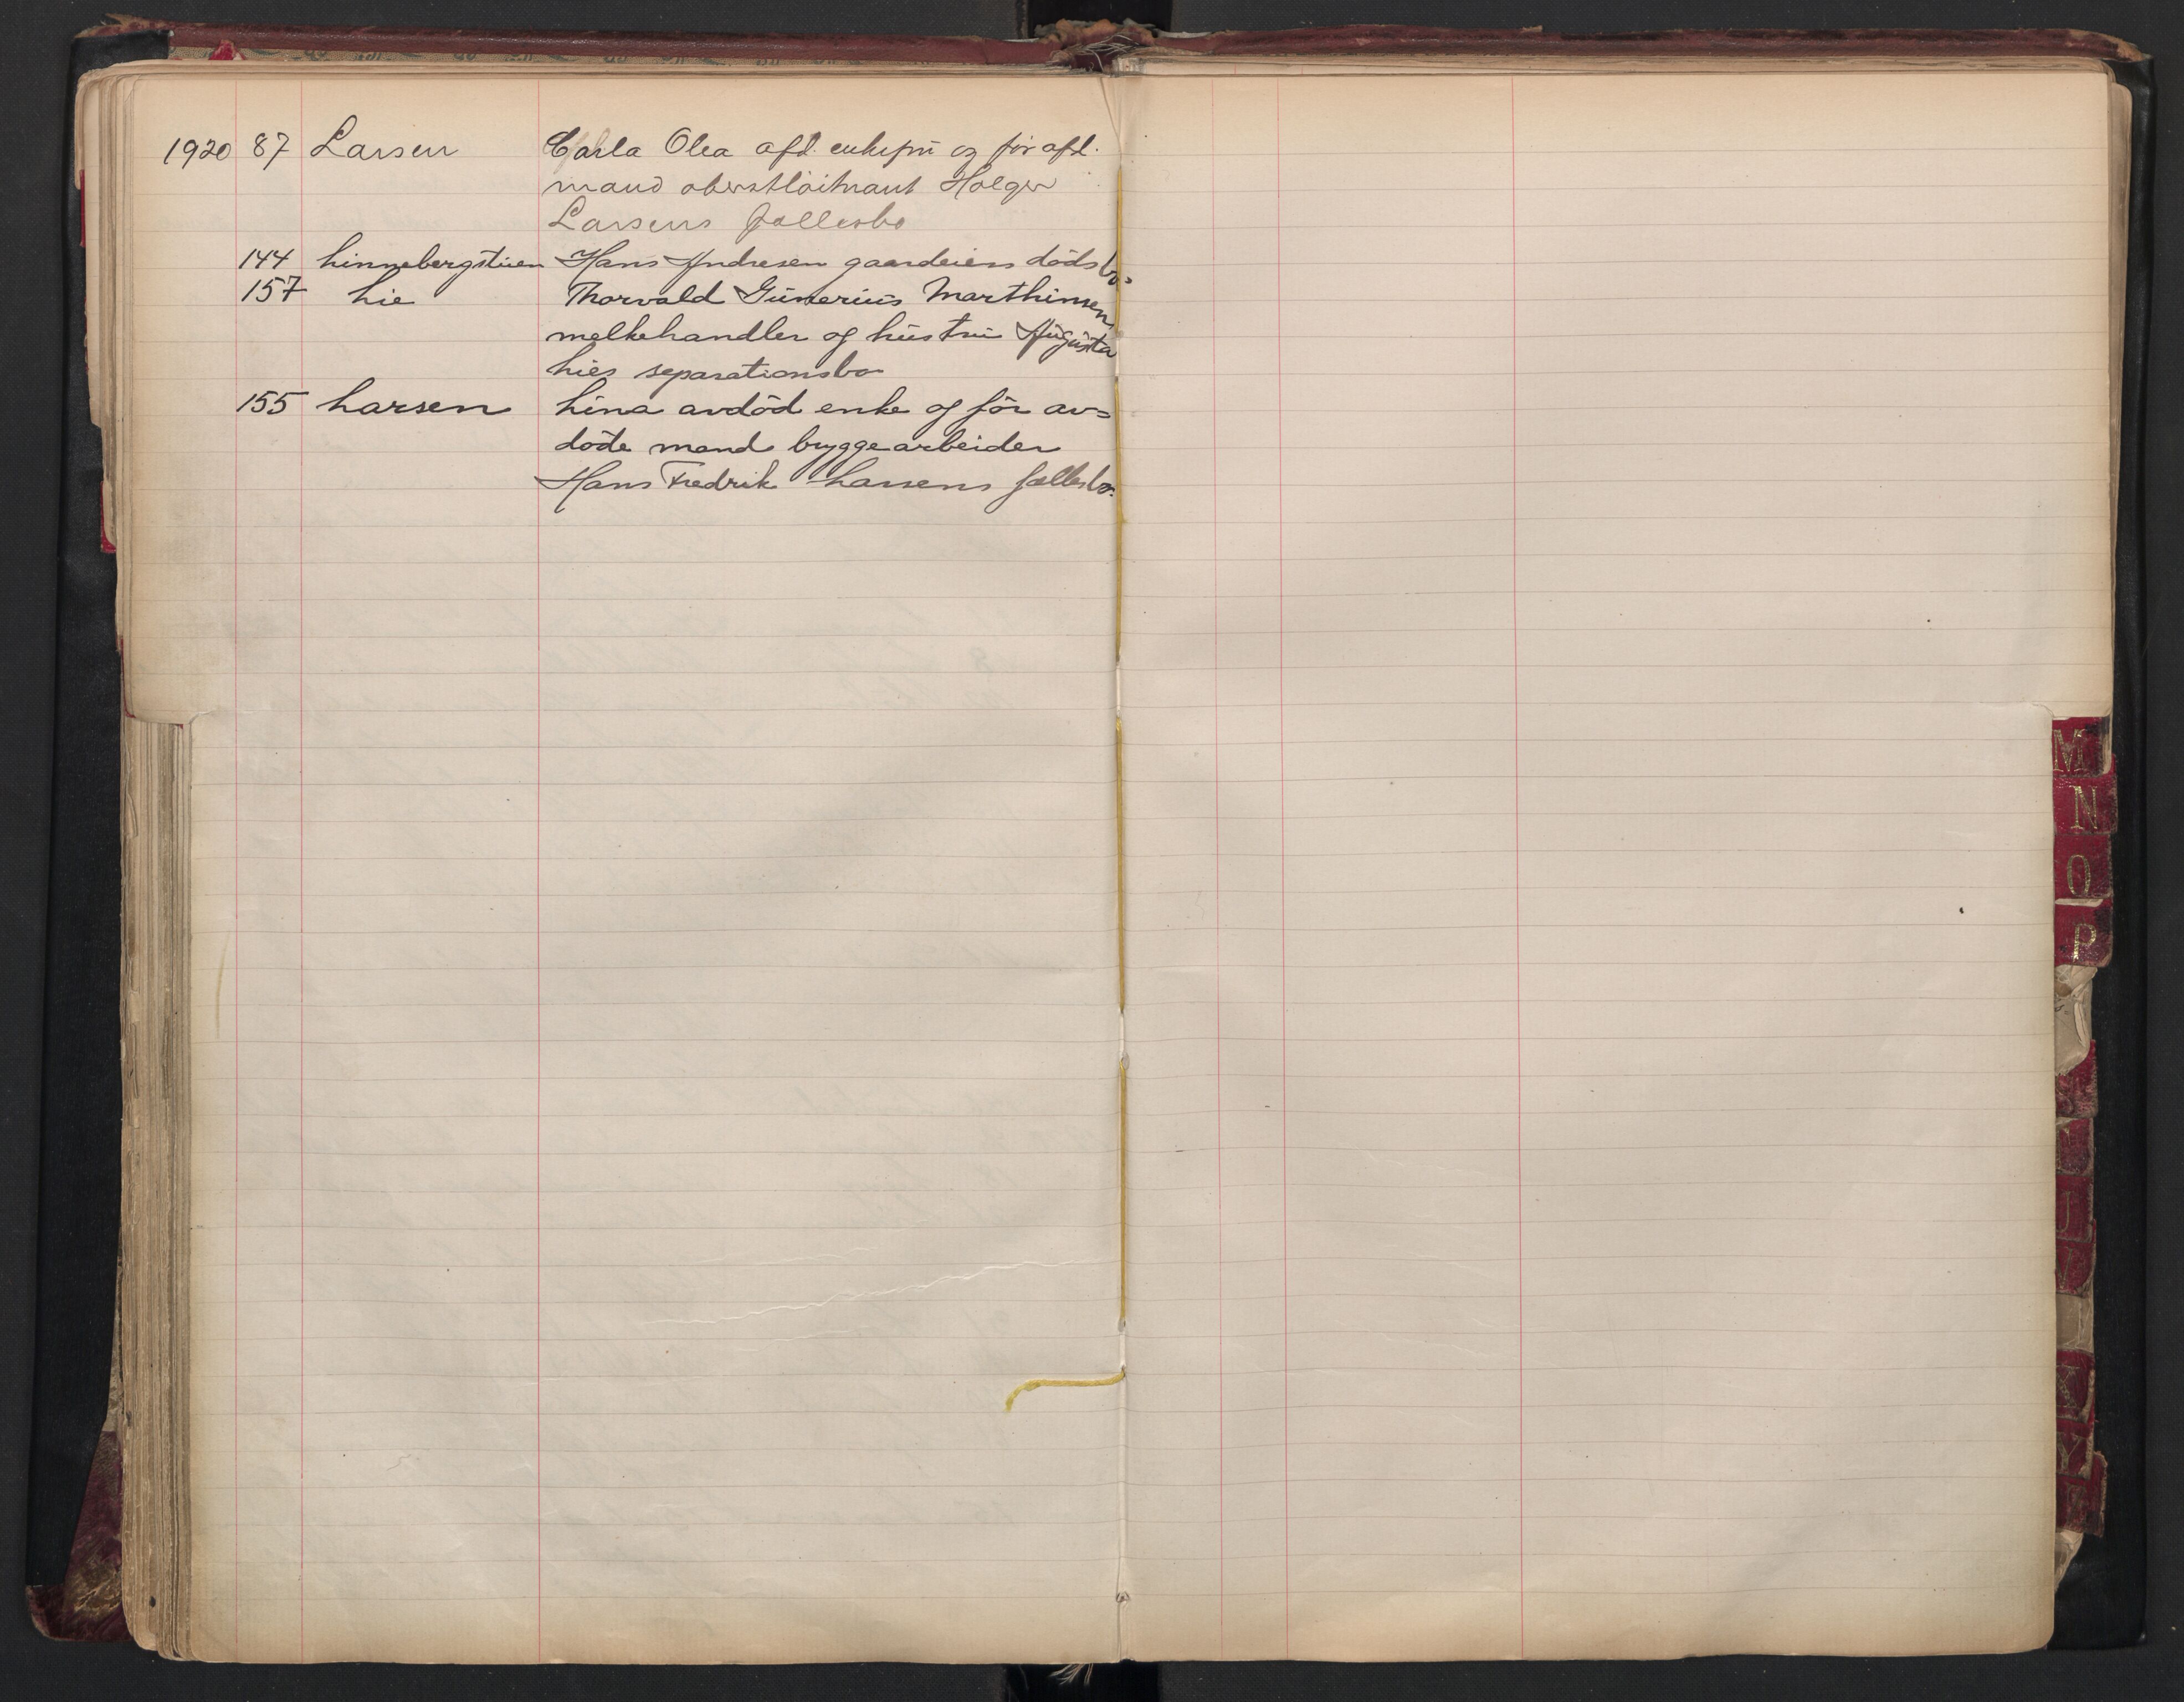 1920 87 Larsen Carla Olea afd. enkefru og før afd.
mand oberstløitnant Holger
Larsens fællesbo
144 Linnebergstuen Hans Andresen gaardeiers dødsbo
157 Lie Thorvald Gunerius Marthinsen
melkehandler og hustru Augusta
Lies separationsbo
155 Larsen Lina avdød enke og før av=
døde mand bryggearbeider
Hans Fredrik Larsens fællesbo.
M
N
O
P
J
X
Y